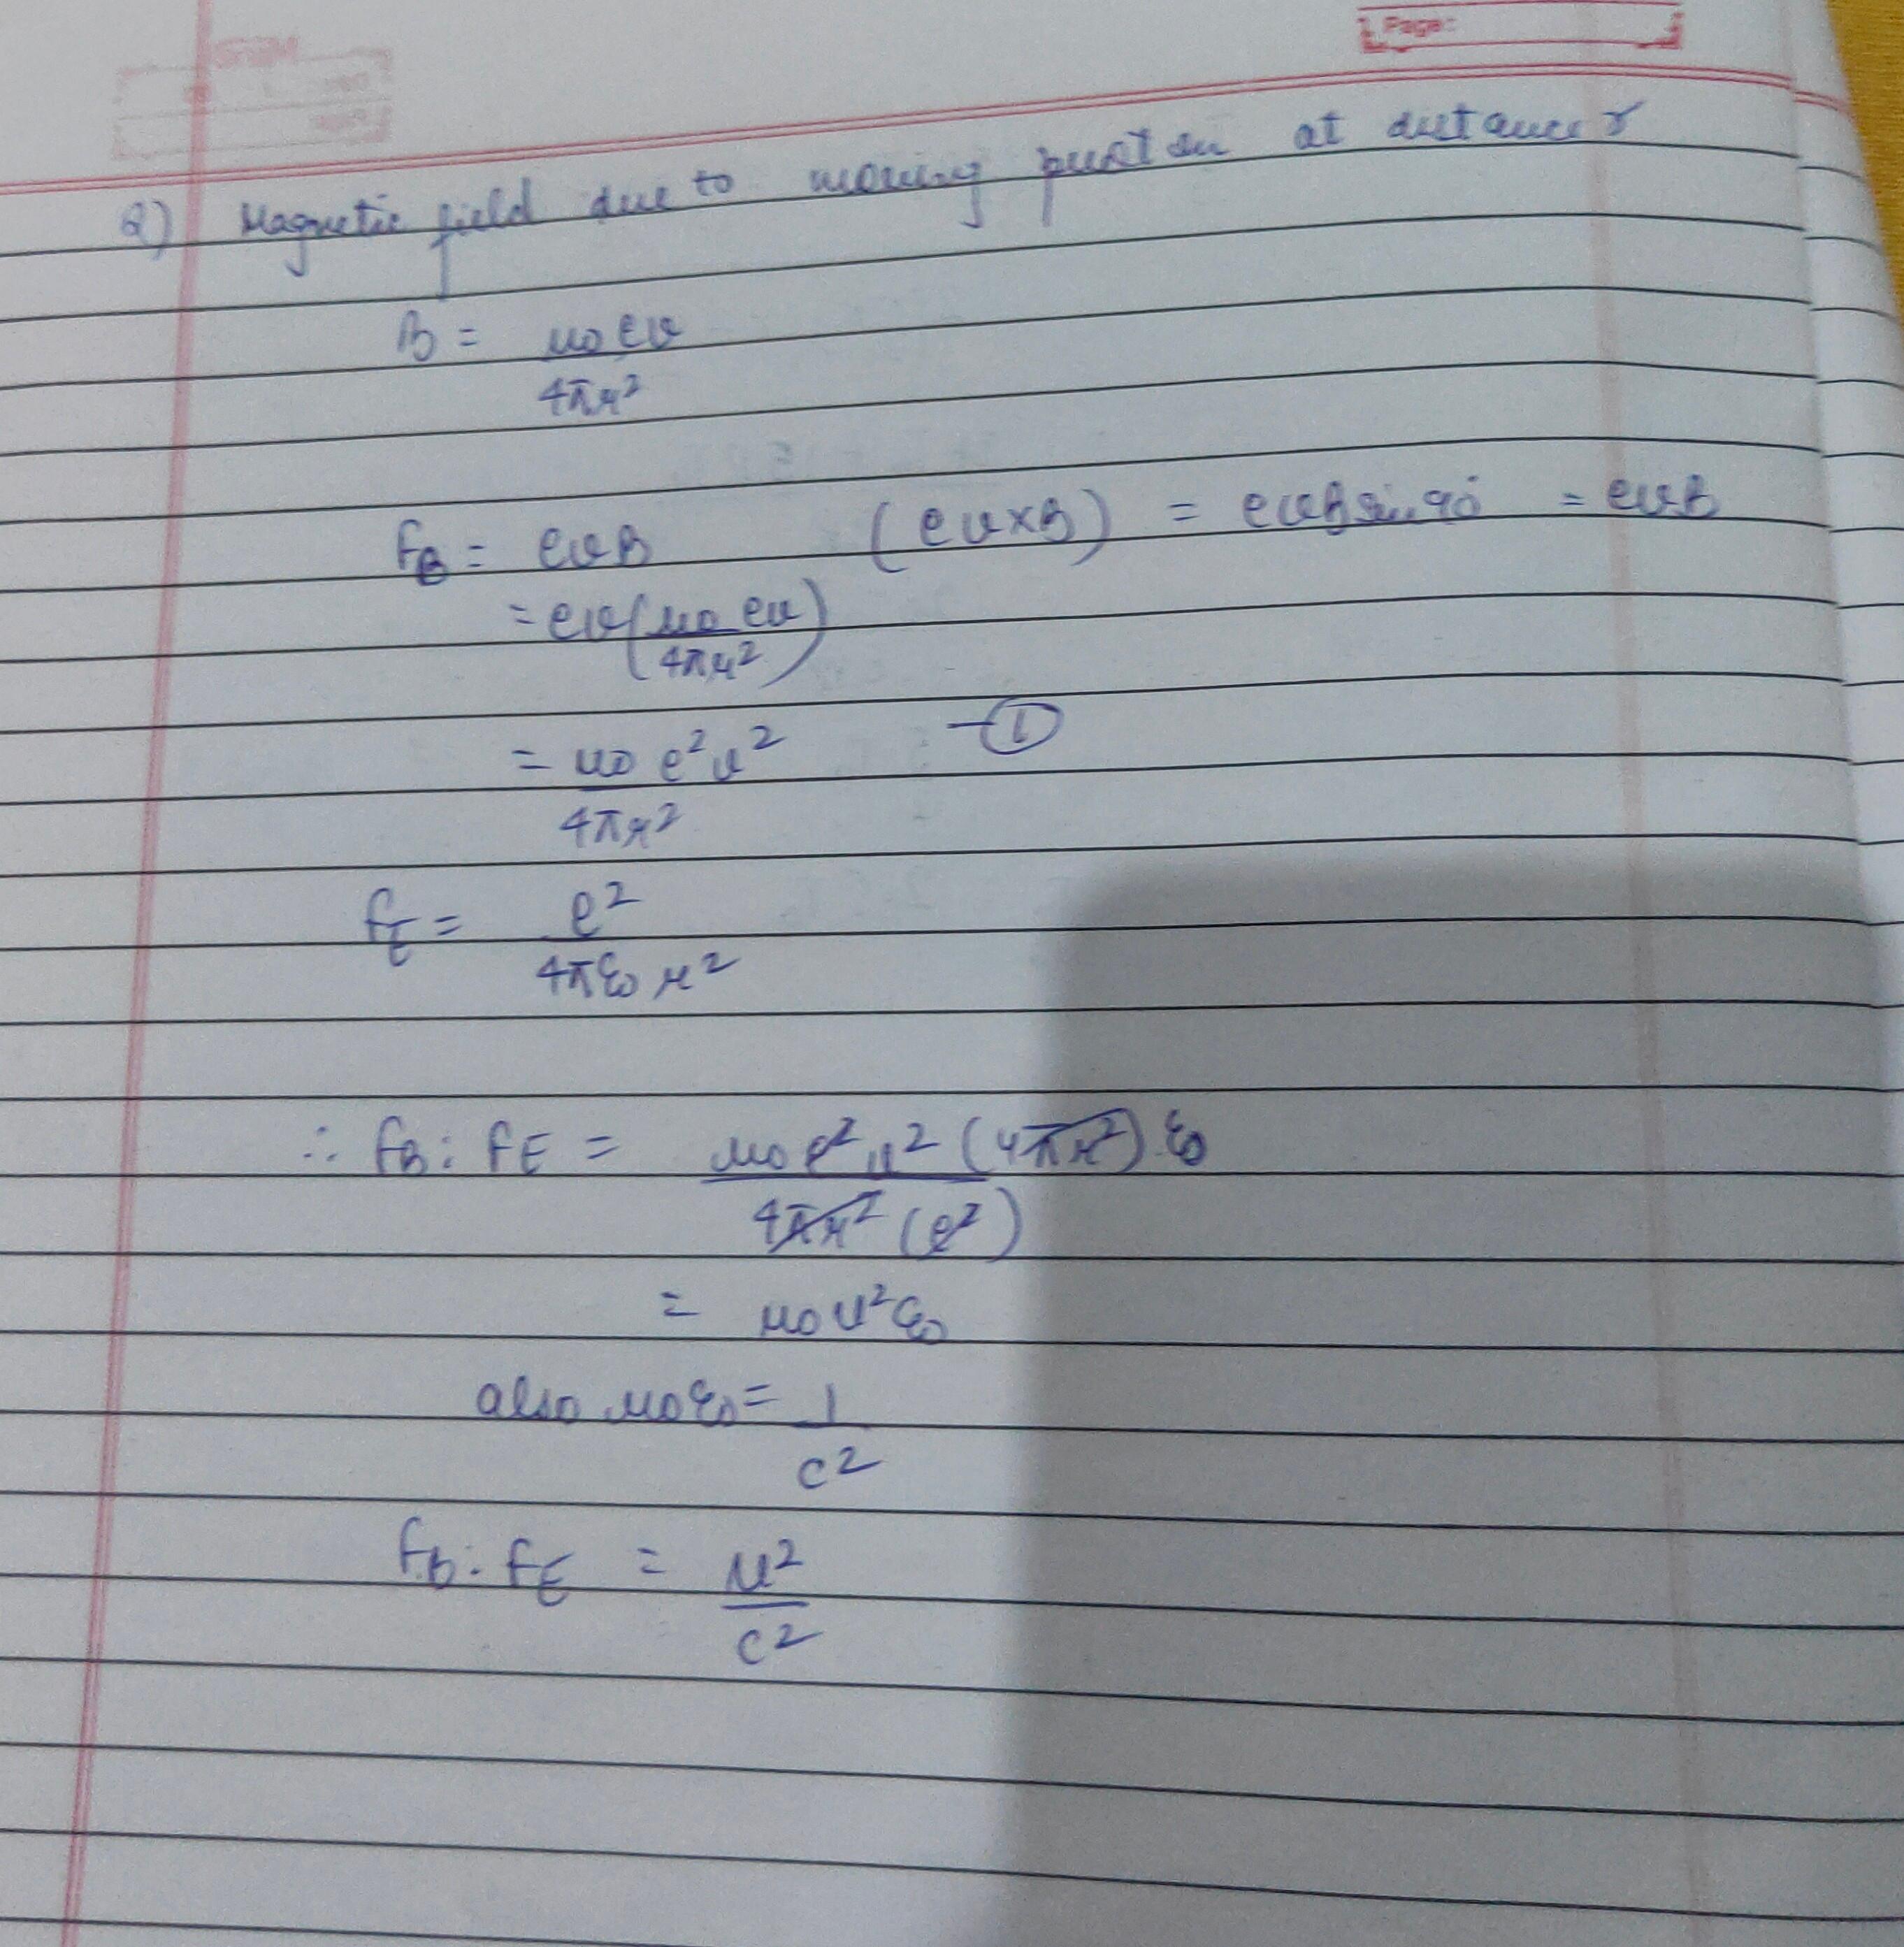 Page:
2) Magnetic field due to moving proton at distance r
B = μ0 ev
4πr²
FB = evB (ev×B) = evB sin 90° = evB
= ev(μ0 ev)
4πr²
= μ0 e²v² —①
4πr²
FE = e²
4πε0 r²
∴ FB : FE = μ0 e² v² (4πr²) ε0
4πr² (e²)
= μ0 v² ε0
also μ0ε0 = 1
c²
FB : FE = v²
c²